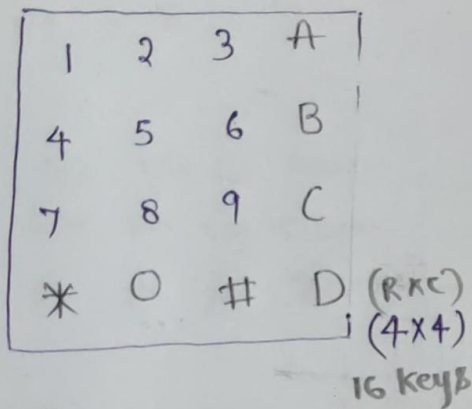 1 2 3 A
4 5 6 B
7 8 9 C
* 0 # D (R×C)
(4×4)
16 keys